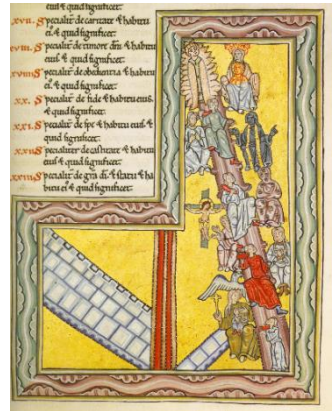 eius & quid significet.
xvii. Specialit de caritate & habitu
ei & quid significet.
xviii. Specialit de timore dni & habitu
eius & quid significet.
xviiii. Specialit de obedientia & habitu
eius & quid significet.
xx. Specialit de fide & habitu eius
& quid significet.
xxi. Specialit de spe & habitu eius &
quid significet.
xxii. Specialiter de castitate & habitu
eius & quid significet.
xxiii. Specialit de gra di & statu & ha
bitu ei & quid significet.